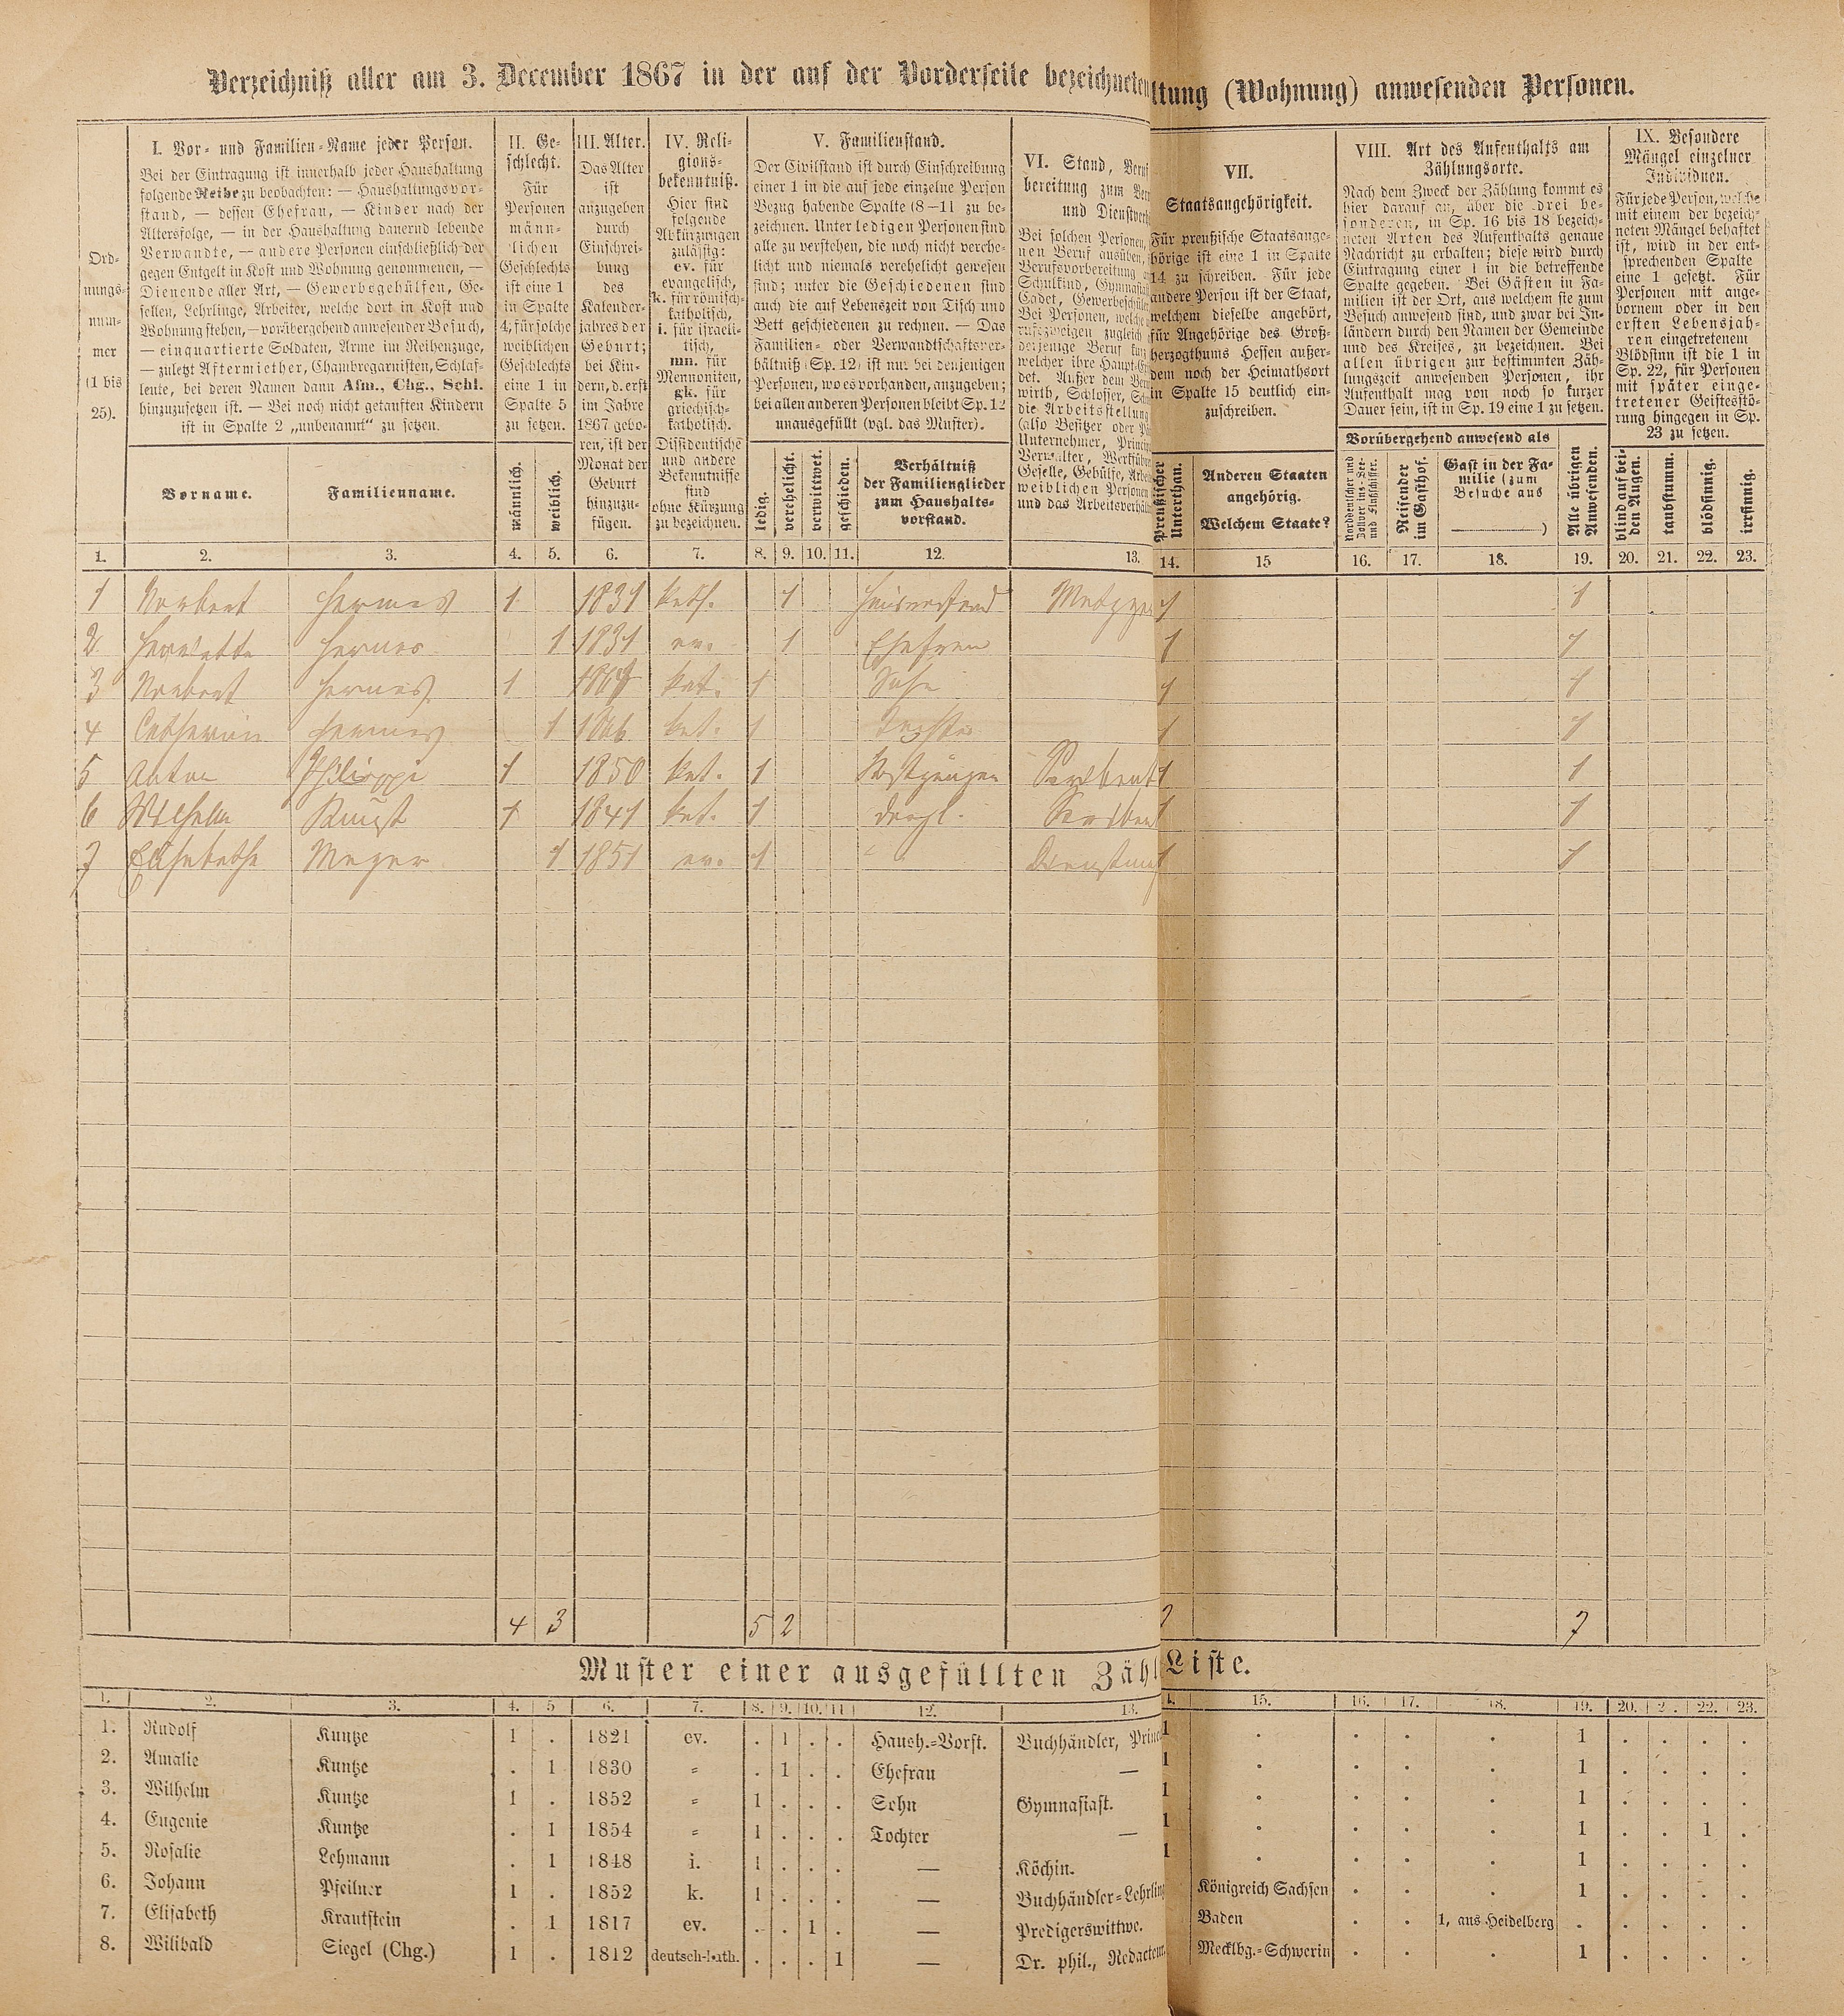 Verzeichniß aller am 3. December 1867 in der auf der Vorderseite bezeichneten ltung (Wohnung) anwesenden Personen.
Ord-
nungs-
num-
mer
(1 bis
25).
I. Vor- und Familien-Name jeder Person.
Bei der Eintragung ist innerhalb jeder Haushaltung
folgende Reihe zu beobachten: — Haushaltungsvor-
stand, — dessen Ehefrau, — Kinder nach der
Altersfolge, — in der Haushaltung dauernd lebende
Verwandte, — andere Personen einschließlich der
gegen Entgelt in Kost und Wohnung genommenen, —
Dienende aller Art, — Gewerbsgehülfen, Ge-
sellen, Lehrlinge, Arbeiter, welche dort in Kost und
Wohnung stehen, — vorübergehend anwesender Besuch,
— einquartierte Soldaten, Arme im Reihenzuge,
— zuletzt Aftermiether, Chambregarnisten, Schlaf-
leute, bei deren Namen dann Afm., Chg., Schl.
hinzuzusetzen ist. — Bei noch nicht getauften Kindern
ist in Spalte 2 „unbenannt“ zu setzen.
Vorname.
Familienname.
II. Ge-
schlecht.
Für
Personen
männ-
lichen
Geschlechts
ist eine 1
in Spalte
4, für solche
weiblichen
Geschlechts
eine 1 in
Spalte 5
zu setzen.
männlich.
weiblich.
III. Alter.
Das Alter
ist
anzugeben
durch
Einschrei-
bung
des
Kalender-
jahres der
Geburt;
bei Kin-
dern, d. erst
im Jahre
1867 gebo-
ren, ist der
Monat der
Geburt
hinzuzu-
fügen.
IV. Reli-
gions-
bekenntniß.
Hier sind
folgende
Abkürzungen
zulässig:
ev. für
evangelisch,
k. für römisch-
katholisch,
i. für israeli-
tisch,
mn. für
Mennoniten,
gk. für
griechisch-
katholisch.
Dissidentische
und andere
Bekenntnisse
sind
ohne Kürzung
zu bezeichnen.
V. Familienstand.
Der Civilstand ist durch Einschreibung
einer 1 in die auf jede einzelne Person
Bezug habende Spalte (8—11 zu be-
zeichnen. Unter ledigen Personen sind
alle zu verstehen, die noch nicht verehe-
licht und niemals verehelicht gewesen
sind; unter die Geschiedenen sind
auch die auf Lebenszeit von Tisch und
Bett geschiedenen zu rechnen. — Das
Familien- oder Verwandtschaftsver-
hältniß (Sp. 12) ist nur bei denjenigen
Personen, wo es vorhanden, anzugeben;
bei allen anderen Personen bleibt Sp. 12
unausgefüllt (vgl. das Muster).
ledig.
verehelicht.
verwittwet.
geschieden.
Verhältniß
der Familienglieder
zum Haushalts-
vorstand.
VI. Stand, Beruf
bereitung zum Ber
und Dienstverh
Bei solchen Personen,
nen Beruf ausüben,
Berufsvorbereitung
Schulkind, Gymnasi
Cadet, Gewerbeschüler
Bei Personen, welche
rufszweigen zugleich
derjenige Beruf kun
welcher ihre Haupt-E
det. Außer dem Ber
wirth, Schlosser, Sch
die Arbeitsstellung
(also Besitzer oder P
Unternehmer, Princip
Verwalter, Werkfüh
Geselle, Gehülfe, Arbe
weiblichen Personen
und das Arbeitsverhäl
VII.
Staatsangehörigkeit.
Für preußische Staatsange-
hörige ist eine 1 in Spalte
14 zu schreiben. Für jede
andere Person ist der Staat,
welchem dieselbe angehört,
für Angehörige des Groß-
herzogthums Hessen außer-
dem noch der Heimathsort
in Spalte 15 deutlich ein-
zuschreiben.
Preußischer
Unterthan.
Anderen Staaten
angehörig.
Welchem Staate?
VIII. Art des Aufenthalts am
Zählungsorte.
Nach dem Zweck der Zählung kommt es
hier darauf an, über die drei be-
sonderen, in Sp. 16 bis 18 bezeich-
neten Arten des Aufenthalts genaue
Nachricht zu erhalten; diese wird durch
Eintragung einer 1 in die betreffende
Spalte gegeben. Bei Gästen in Fa-
milien ist der Ort, aus welchem sie zum
Besuch anwesend sind, und zwar bei In-
ländern durch den Namen der Gemeinde
und des Kreises, zu bezeichnen. Bei
allen übrigen zur bestimmten Zäh-
lungszeit anwesenden Personen, ihr
Aufenthalt mag von noch so kurzer
Dauer sein, ist in Sp. 19 eine 1 zu setzen.
Vorübergehend anwesend als
Norddeutscher und
Zollver ins-See-
und Flußschiffer.
Reisender
im Gasthof.
Gast in der Fa-
milie (zum
Besuche aus
)
Alle übrigen
Anwesenden.
IX. Besondere
Mängel einzelner
Individuen.
Für jede Person, welche
mit einem der bezeich-
neten Mängel behaftet
ist, wird in der ent-
sprechenden Spalte
eine 1 gesetzt. Für
Personen mit ange-
bornem oder in den
ersten Lebensjah-
ren eingetretenem
Blödsinn ist die 1 in
Sp. 22, für Personen
mit später einge-
tretener Geistesstö-
rung hingegen in Sp.
23 zu setzen.
blind auf bei-
den Augen.
taubstumm.
blödsinnig.
irrsinnig.
1. 2. 3. 4. 5. 6. 7. 8. 9. 10. 11. 12. 13. 14. 15 16. 17. 18. 19. 20. 21. 22. 23.
1 Norbert Hermes 1 1831 kath. 1 Hausvorstand Metzger 1 1
2 Hermes 1 1831 ev. 1 Ehefrau 1 1
3 Norbert Hermes 1 kat. 1 Sohn 1 1
4 Catharina Hermes 1 1866 kat. 1 Tochter 1 1
5 Anton Philippi 1 1850 kat. 1 Kostgänger 1 1
6 Wilhelm 1 1841 kat. 1 desgl. 1 1
7 Elisabetha Meyer 1 1851 ev. 1 " 1 1
4 3 5 2 7 7
Muster einer ausgefüllten Zähl Liste.
1. 2. 3. 4. 5 6. 7. 8. 9. 10. 11 12. 13. 15. 16. 17. 18. 19. 20. 2 . 22. 23.
1. Rudolf Kuntze 1 . 1821 ev. . 1 . . Haush.-Vorst. Buchhändler, Princ 1 . . . . 1 . . . .
2. Amalie Kuntze . 1 1830 = . 1 . . Ehefrau — 1 . . . . 1 . . . .
3. Wilhelm Kuntze 1 . 1852 = 1 . . . Sohn Gymnasiast. 1 . . . . 1 . . . .
4. Eugenie Kuntze . 1 1854 = 1 . . . Tochter — 1 . . . . 1 . . 1 .
5. Rosalie Lehmann . 1 1848 i. 1 . . . — Köchin. 1 . . . . 1 . . . .
6. Johann Pfeilner 1 . 1852 k. 1 . . . — Buchhändler-Lehrling Königreich Sachsen . . . 1 . . . .
7. Elisabeth Krautstein . 1 1817 ev. . . 1 . — Predigerswittwe. Baden . . 1, aus Heidelberg . . . . .
8. Wilibald Siegel (Chg.) 1 . 1812 deutsch-kath. . . . 1 — Dr. phil., Redacteur. Mecklbg.-Schwerin . . . 1 . . . .